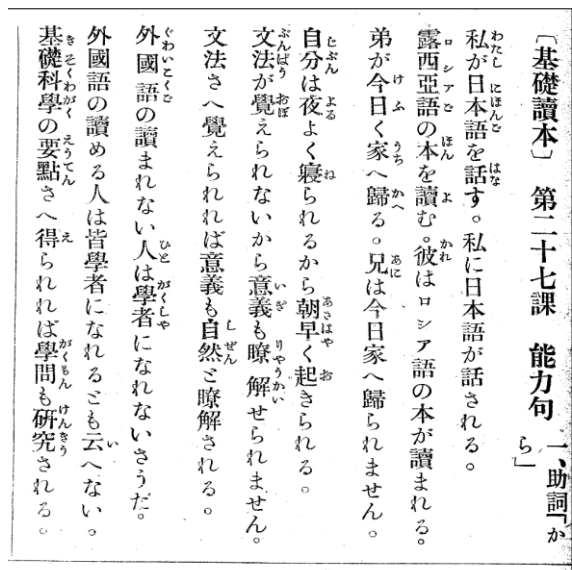 〔基礎讀本〕 第二十七課 能力句 一、助詞「から」
私が日本語を話す。私に日本語が話される。
露西亞語の本を讀む。彼はロシア語の本が讀まれる。
弟が今日く家へ歸る。兄は今日家へ歸られません。
自分は夜よく寢られるから朝早く起きられる。
文法が覺えられないから意義も瞭解せられません。
文法さへ覺えられれば意義も自然と瞭解される。
外國語の讀まれない人は學者になれないさうだ。
外國語の讀める人は皆學者になれるとも云へない。
基礎科學の要點さへ得られれば學問も研究される。